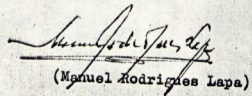 (Manuel Rodrigues Lapa)